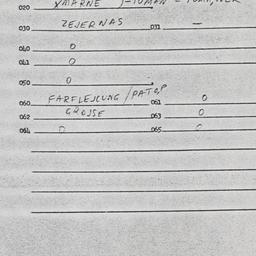 020
030 ZEJERNAS 031 —
040 0
041 0
050 0
060 FARFLEJCUNG / PATOP 061 0
062 GROJSE 063 0
064 0 065 0